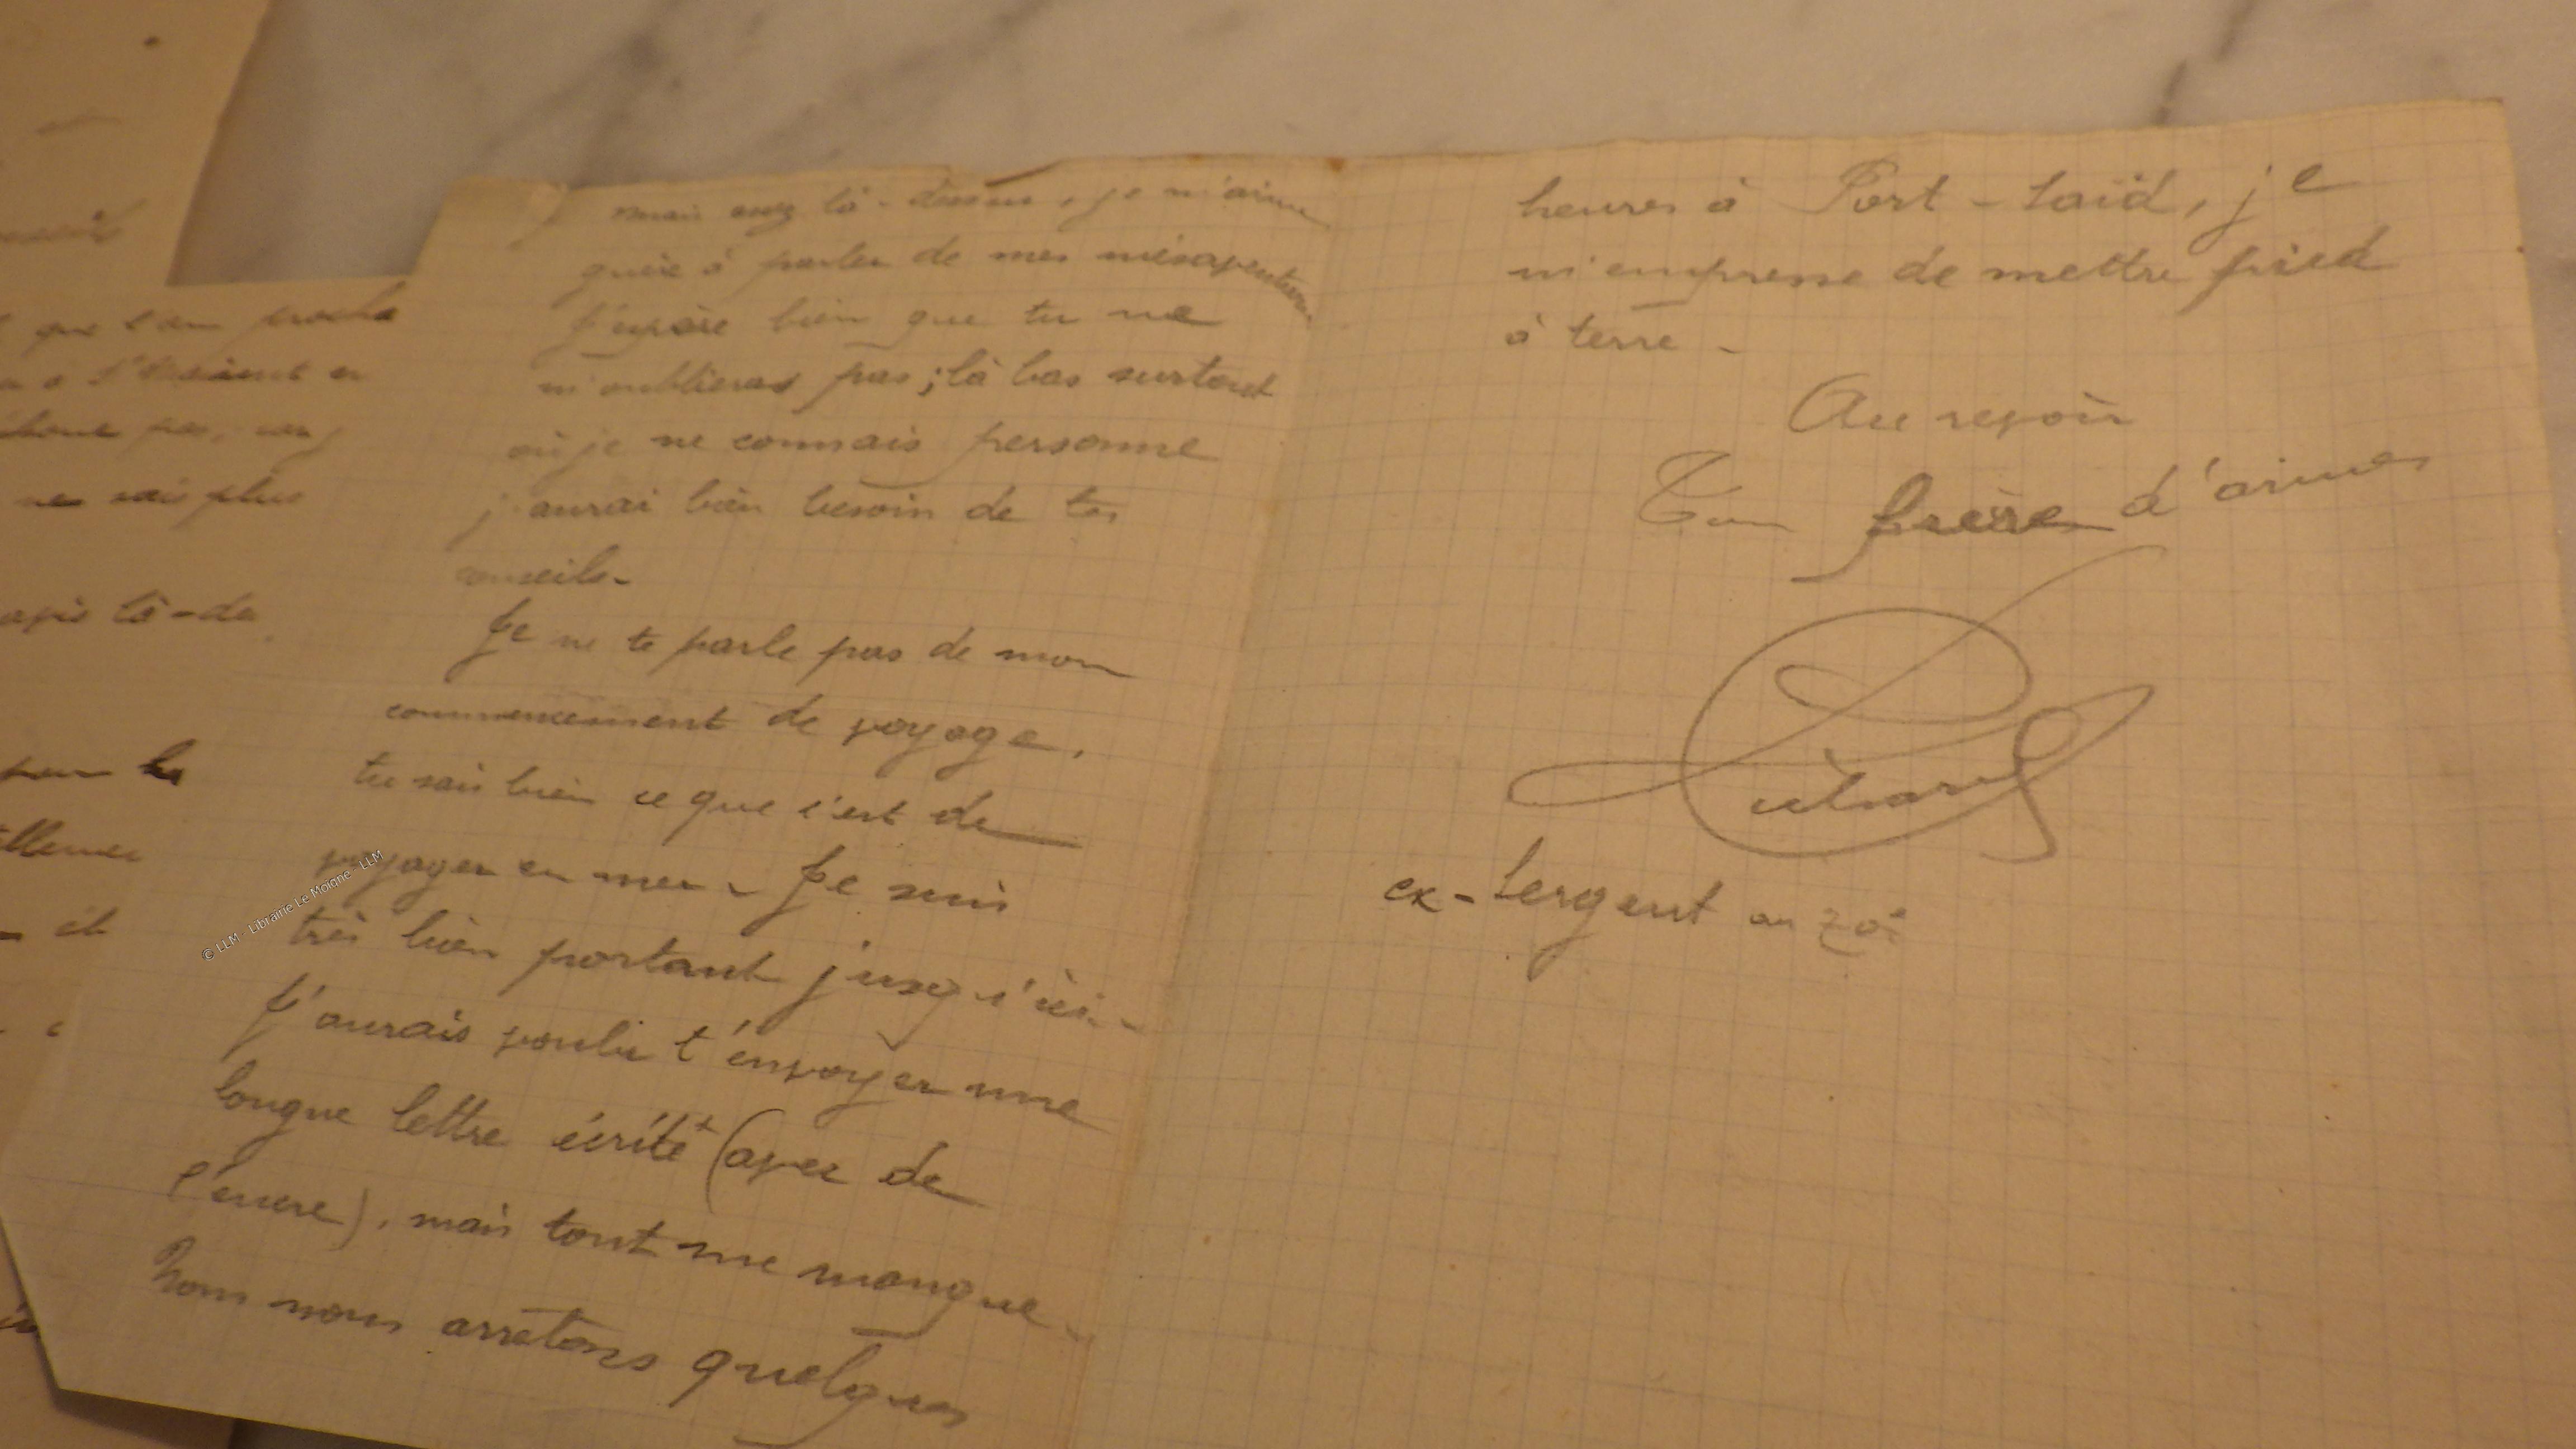 que l'on
pas,
ne sais plus
avis là-de
pour la
mais là-dessus, je n'aime
guère à parler de mes mésaventures
J'espère bien que tu ne
m'oublieras pas ; là bas surtout
où je ne connais personne
j'aurai bien besoin de tes
conseils-
Je ne te parle pas de mon
commencement de voyage,
tu sais bien ce que c'est de
voyager en mer - Je suis
très bien portant jusqu'ici -
J'aurais voulu t'envoyer une
longue lettre écrite (avec de
l'encre), mais tout me manque -
Nous nous arrêtons quelques
heures à Port-Saïd, je
m'empresse de mettre pied
à terre -
Au revoir
Ton frère d'armes
ex-Sergent au 20e
© LLM - Librairie Le Moigne - LLM